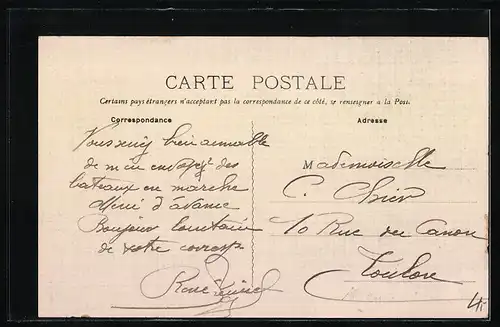 CARTE POSTALE
Certains pays étrangers n'acceptant pas la correspondance de ce côté, se renseigner à la Post.
Correspondance
Adresse
bien aimable
de m'en des
bateaux en marche
Merci d'avance
Bonjour lointain
de votre corresp
René
Mademoiselle
C.
10 Rue du Canon
Toulon
4